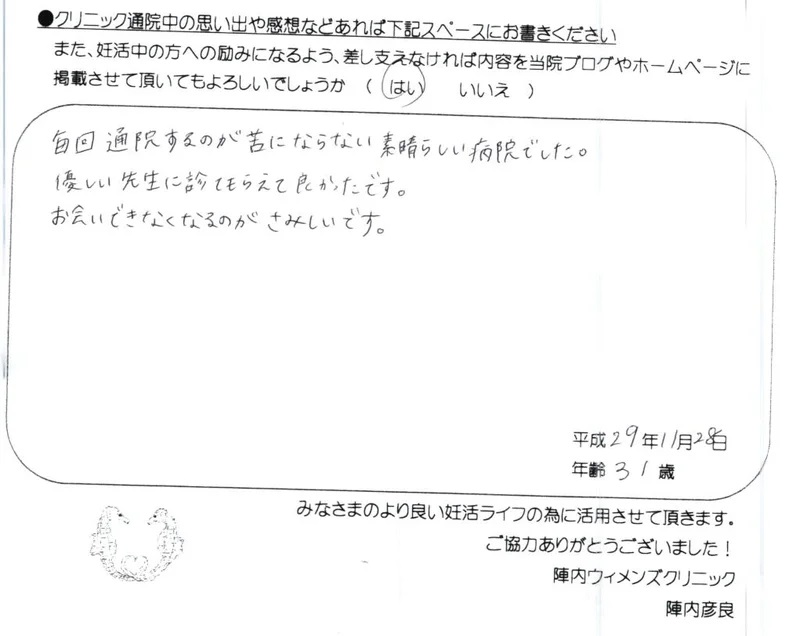 ●クリニック通院中の思い出や感想などあれば下記スペースにお書きください
また、妊活中の方への励みになるよう、差し支えなければ内容を当院ブログやホームページに
掲載させて頂いてもよろしいでしょうか （ はい いいえ ）
毎回 通院するのが苦にならない 素晴らしい病院でした。
優しい先生に診てもらえて良かったです。
お会いできなくなるのが さみしいです。
平成29年11月28日
年齢31歳
みなさまのより良い妊活ライフの為に活用させて頂きます。
ご協力ありがとうございました！
陣内ウィメンズクリニック
陣内彦良